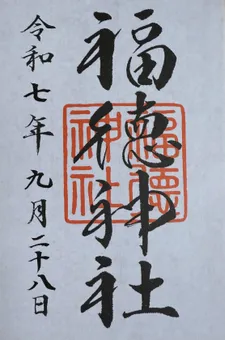 福徳神社
令和七年九月二十八日
福徳神社